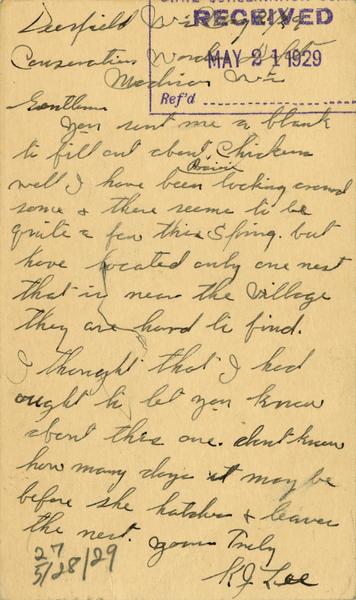 STATE CONSERVATION COMM
RECEIVED
MAY 21 1929
Ref'd
Deerfield Wis May 19
Conservation
Madison Wis
Gentlemen
You sent me a blank
to fill out about Prairie Chickens
well I have been looking around
some & there seems to be
quite a few this Spring. but
have located only one nest
that is near the Village
they are hard to find.
I thought that I had
ought to let you know
about this one. dont know
how many days it may be
before she hatches & leaves
the nest. yours Truly
Lee
27
5/28/29